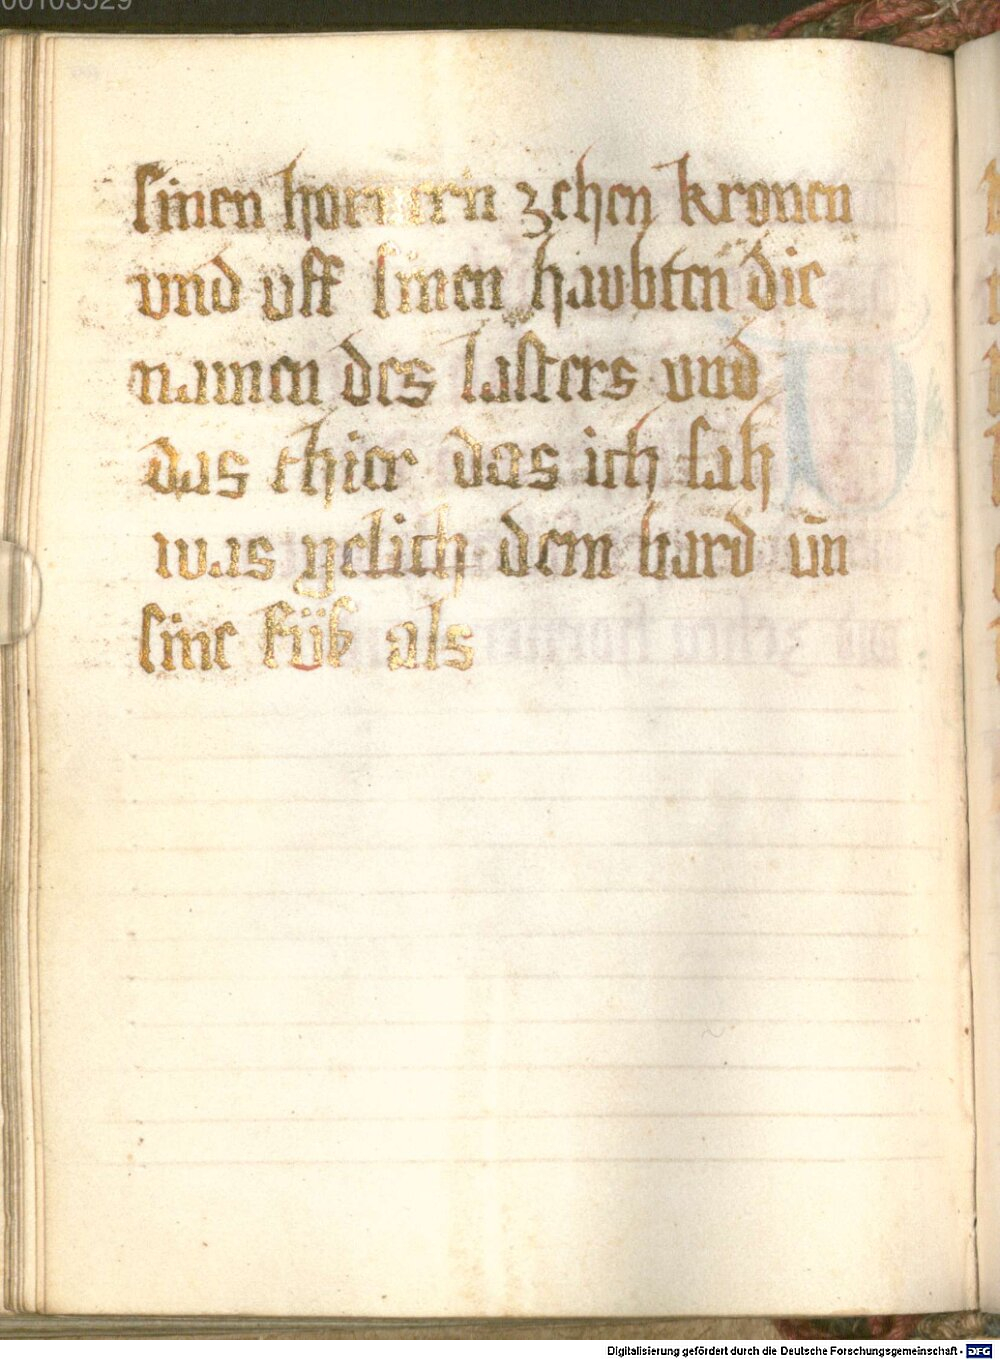 00103529
sinen hornern zehen kronen
vnd vff sinen haubten die
namen des lasters vnd
das thier das ich sah
was gelich dem bard vn̄
sine füß als
Digitalisierung gefördert durch die Deutsche Forschungsgemeinschaft - DFG